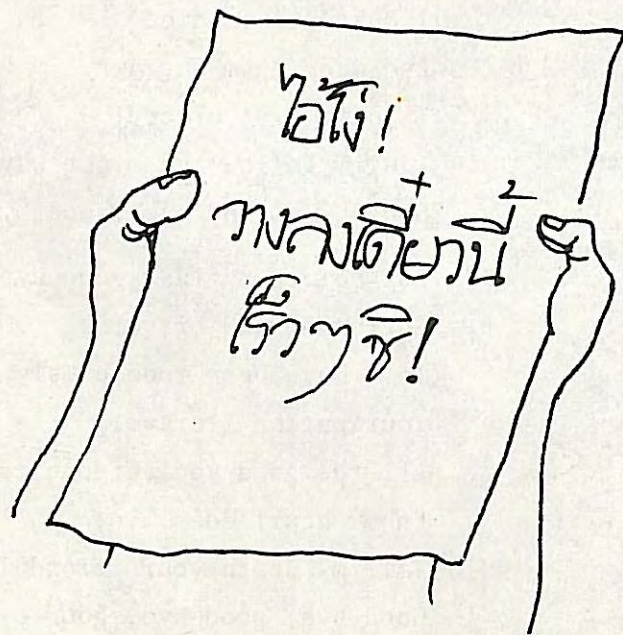 ไอ้โง่!
วางลงเดี๋ยวนี้
เร็วๆซิ!